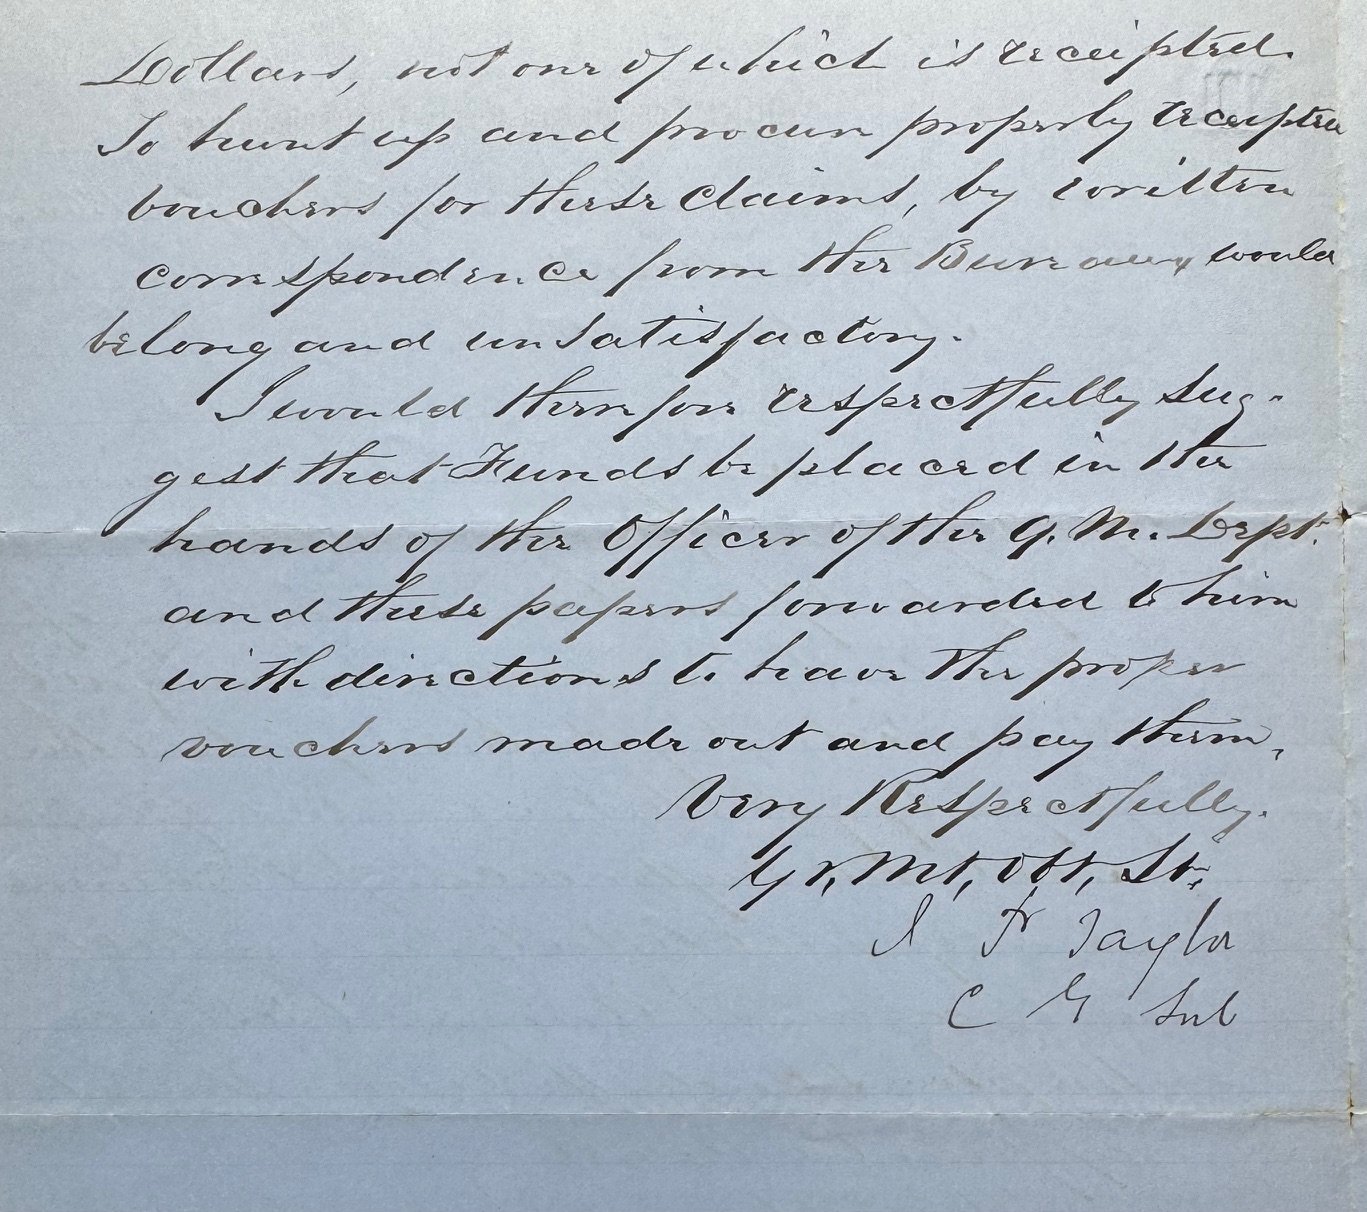 Dollars, not one of which is receipted.
To hunt up and procure properly receipted
vouchers for these claims, by written
correspondence from the Bureau, would
be long and unsatisfactory.
I would therefore respectfully sug-
gest that Funds be placed in the
hands of the Officer of the Q. M. Dept.
and these papers forwarded to him
with directions to have the proper
vouchers made out and pay them,
Very Respectfully.
Yr, Mt, Obt, St,
J P Taylor
C G Sub